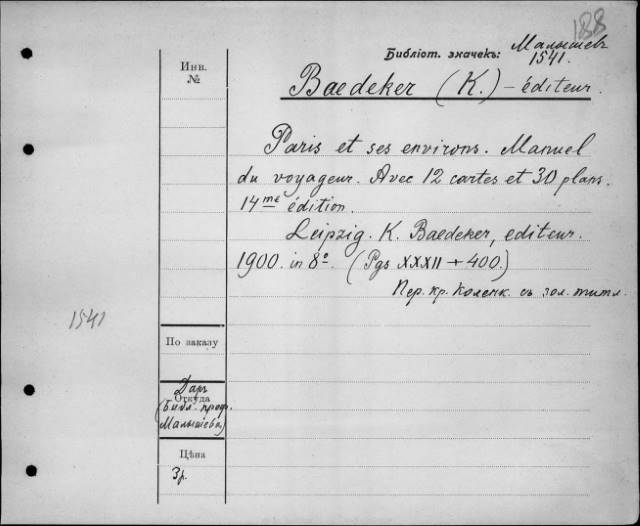 188
Библіот. значекъ: Малышевъ
1541.
Инв.
№
Baedeker (K.) – éditeur.
Paris et ses environs. Manuel
du voyageur. Avec 12 cartes et 30 plans.
14me édition.
Leipzig. K. Baedeker, editeur.
1900. in 8°. (Pgs XXXII + 400.)
Пер. кр. коленк. съ зол. титл.
1541
По заказу
Даръ
Откуда
(Библ. проф.
Малышева)
Цѣна
3р.